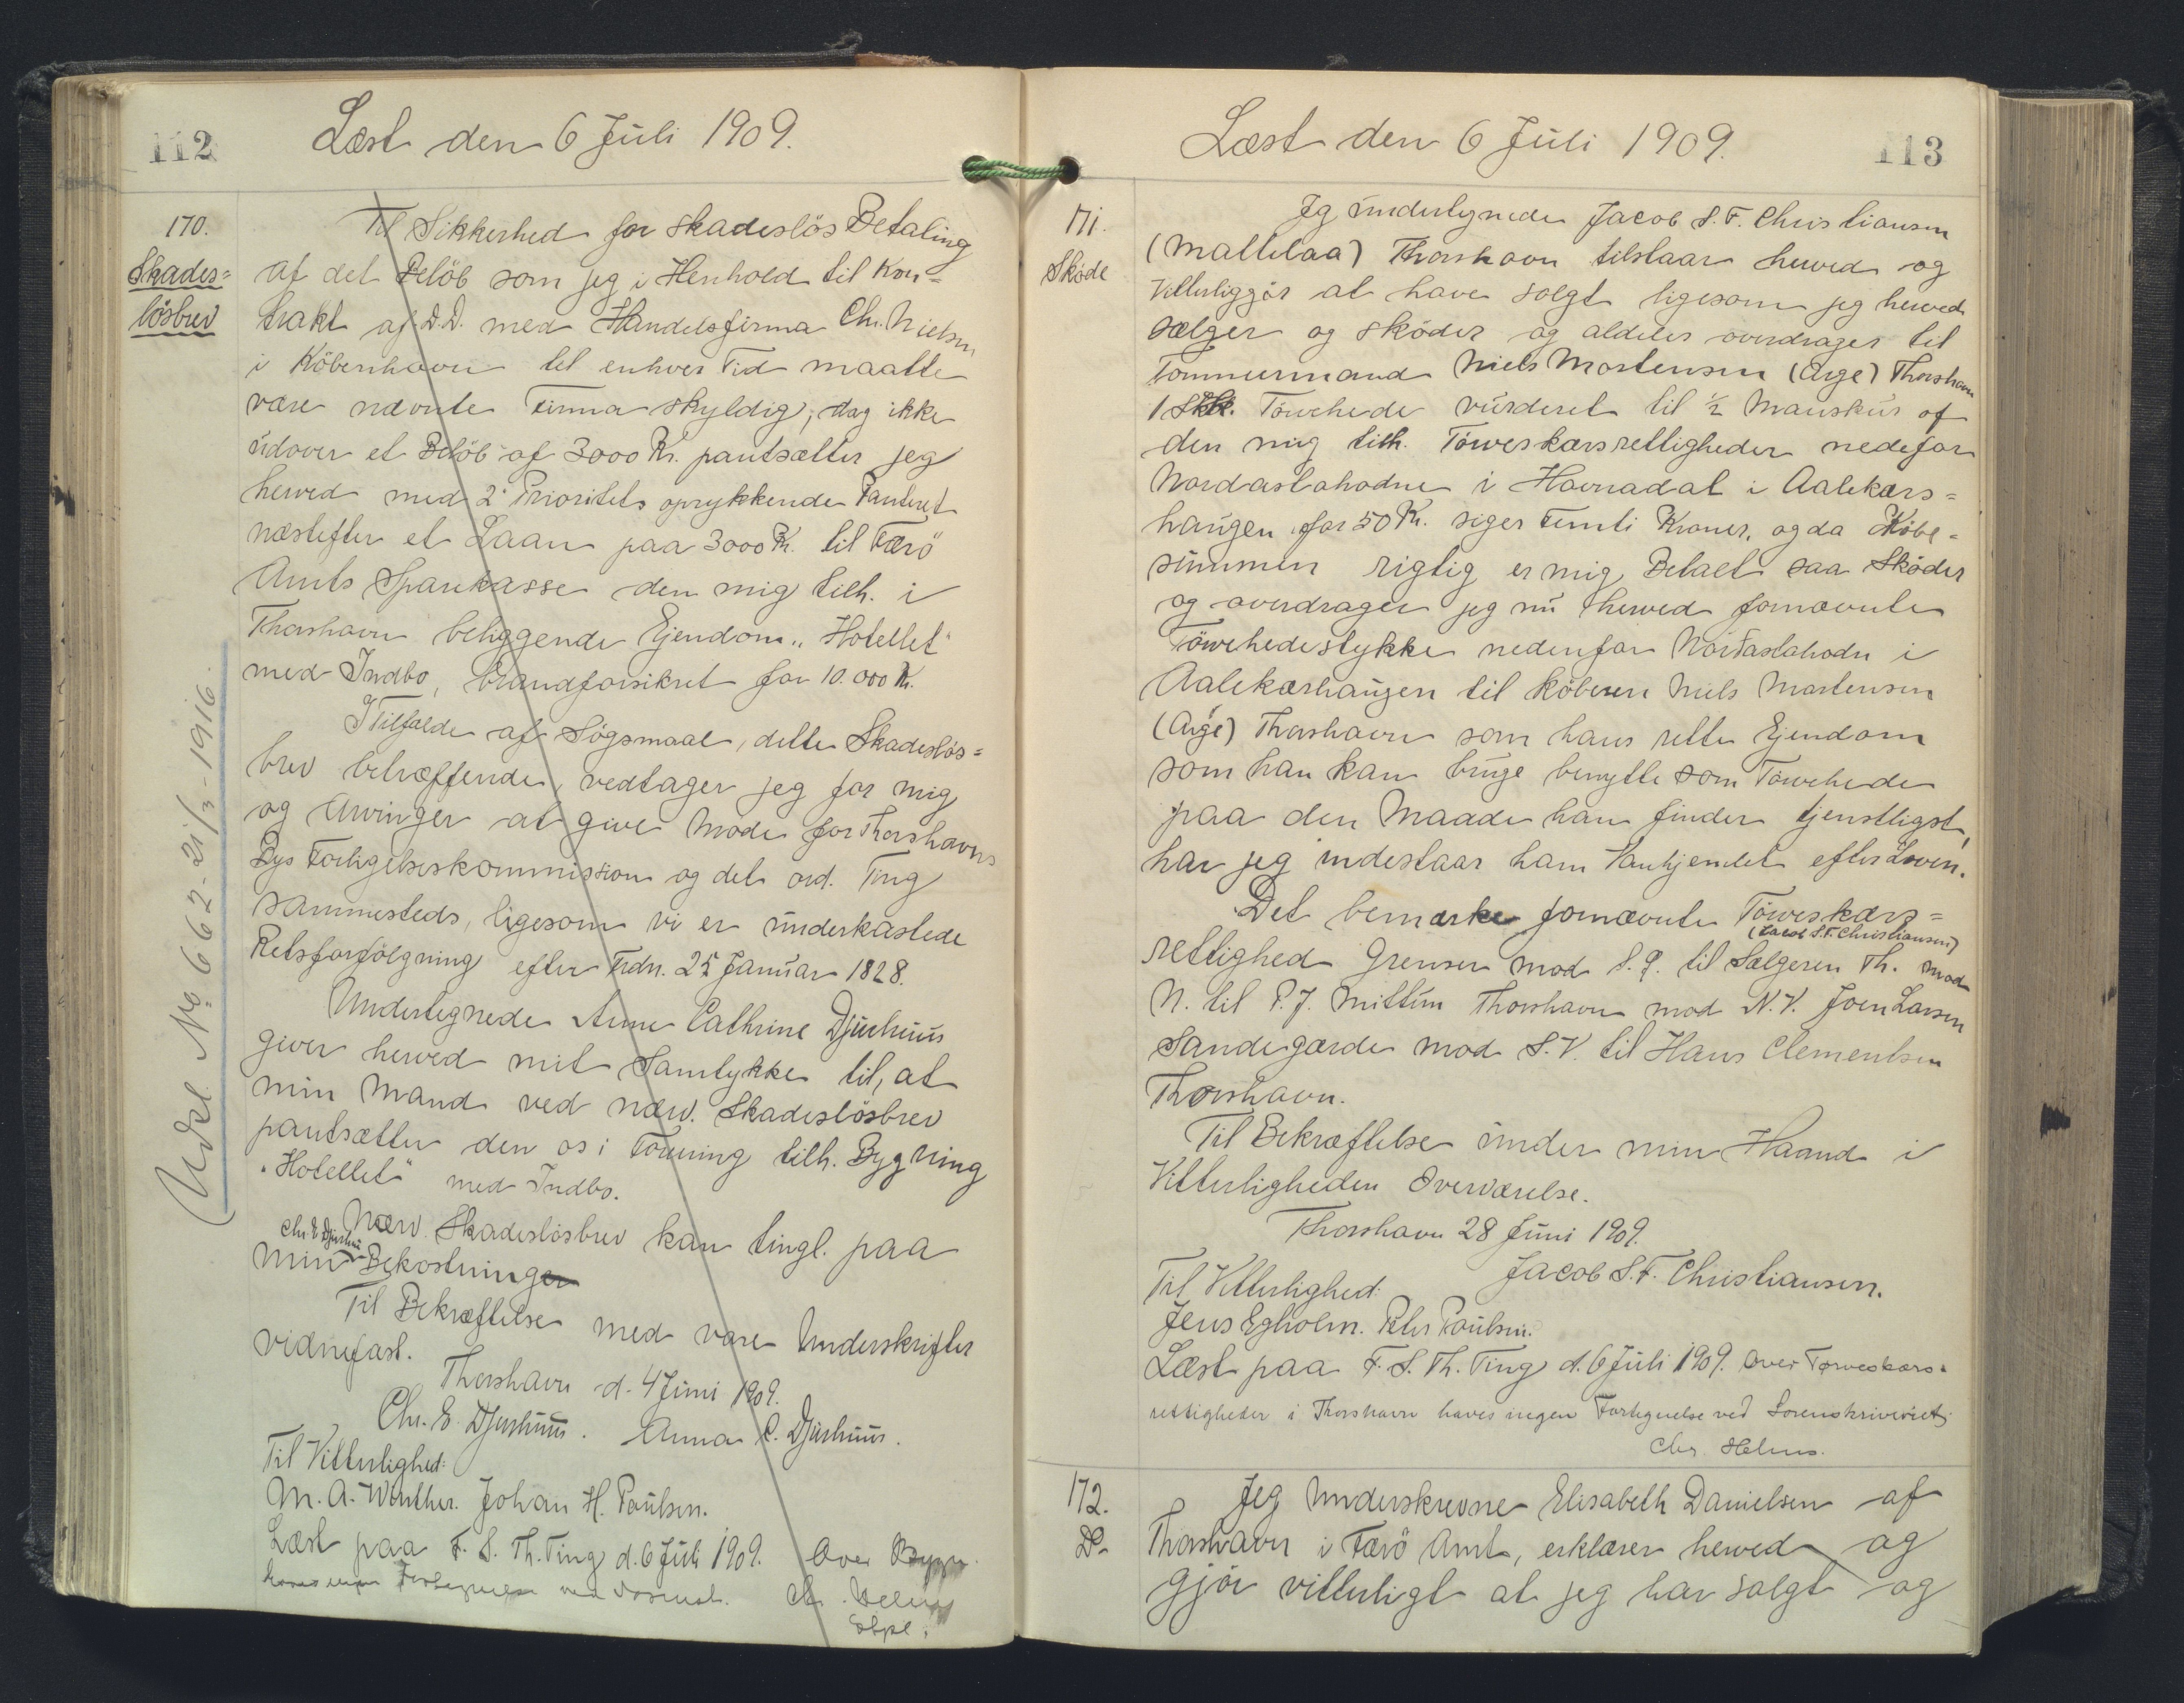 112
Læst den 6 Juli 1909.
170.
Skades=
lösbrev
Til Sikkerhed for skadeslös Betaling
af det Belöb som jeg i Henhold til Kon=
trakt af D.D. med Handelsfirma Chr. Nielsen
i Köbenhavn til enhver Tid maatte
være nævnte Firma skyldig, dog ikke
udover et Belöb af 3000 Kr. pantsætter jeg
herved med 2' Prioritets oprykkende Panteret
næstefter et Laan paa 3000 Kr. til Færö
Amts Sparekasse den mig tilh. i
Thorshavn beliggende Ejendom „Hotellet"
med Indbo, brandforsikret for 10.000 Kr.
I Tilfælde af Sögsmaal, dette Skadeslös=
brev betræffende, vedtager jeg for mig
og Arvinger at give Möde for Thorshavns
Bys Forligelseskommission og det ord. Ting
sammesteds, ligesom vi er underkastede
Retsforfölgning efter Frdn. 25 Januar 1828.
Undertegnede Anne Cathrine Djurhuus
giver herved mit Samtykke til, at
min Mand ved nærv. Skadeslösbrev
pantsætter den os i Forening tilh. Bygning
„Hotellet" med Indbo.
Nærv. Skadeslösbrev kan tingl. paa
Chr. E. Djurhuus
min Bekostninger
Til Bekræftelse med vore Underskrifter
vidnefast.
Thorshavn d. 4 Juni 1909.
Chr. E. Djurhuus. Anna C. Djurhuus.
Til Vitterlighed:
M. A. Winther. Johan H. Poulsen.
Læst paa F. S. Th. Ting d. 6 Juli 1909. Over Bygn.
haves ingen Fortegnelse ved Sorensk.
Chr. Helms
Udsl. No 662 - 21/3 - 1916.
113
Læst den 6 Juli 1909.
171.
Sköde
Jeg undertegnede Jacob S. F. Christiansen
(Mattelaa) Thorshavn tilstaar herved og
Vitterliggör at have solgt ligesom jeg herved
sælger og sköder og aldeles overdrager til
Tömmermand Niels Mortensen (Arge) Thorshavn
1 Stk. Törvehede vurderet til ½ Manskur af
den mig tilh. Törveskærsrettigheder nedefor
Nordastahodne i Havnadal i Aalekærs=
haugen for 50 Kr. siger Femti Kroner, og da Köbe=
summen rigtig er mig Betalt saa Sköder
og overdrager jeg nu herved fornævnte
Törvehedestykke nedenfor Nordastahodn i
Aalekærhaugen til köberen Niels Mortensen
(Arge) Thorshavn som hans rette Ejendom
som han kan bruge benytte som Törvehede
paa den Maade han finder tjenstligst,
har jeg indestaar ham Vanhjemlet efter Loven.
Det bemærke fornævnte Törveskærs=
(Jacob S. F. Christiansen)
rettighed Grenser mod S. Ø. til Sælgeren Th. mod
N. til P. J. Mittun Thorshavn mod N. V. Joen Larsen
Sandegærde mod S. V. til Hans Clementsen
Thorshavn.
Til Bekræftelse under min Haand i
Vitterligheden Overværelse.
Thorshavn 28 Juni 1909.
Jacob S. F. Christiansen.
Til Vitterlighed:
Jens Egholm. Peter Poulsen.
Læst paa F. S. Th. Ting d. 6 Juli 1909. Over Törveskærs=
rettigheder i Thorshavn haves ingen Fortegnelse ved Sorenskriveriet
Chr. Helms.
172.
Do
Jeg Underskrevne Elisabeth Danielsen af
Thorshavn i Færö Amt, erklærer herved og
gjör vitterligt at jeg har solgt og